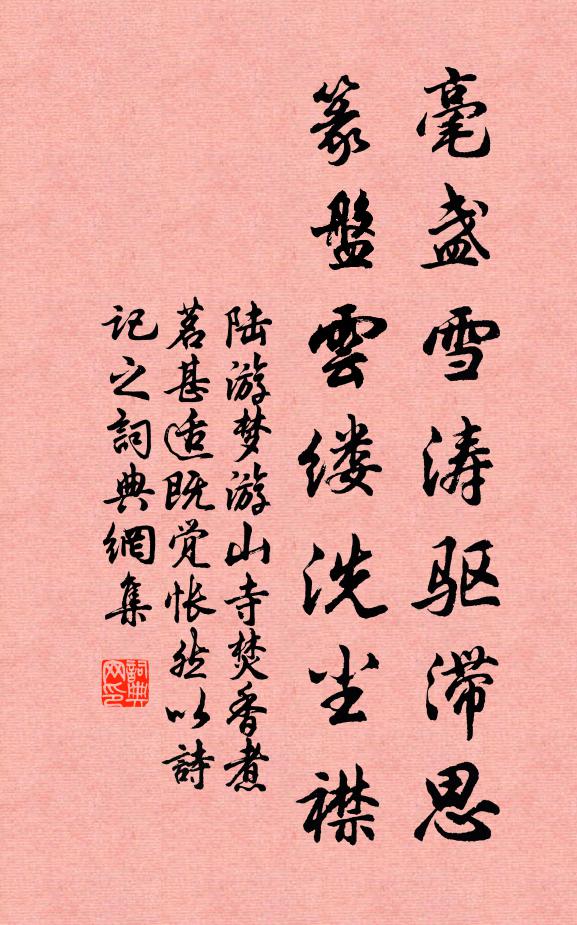 毫盏雪涛驱滞思
篆盤雲缕洗尘襟
陆游梦游山寺焚香煮
茗甚适既觉怅然以詩
记之詞典網集
詞典网印